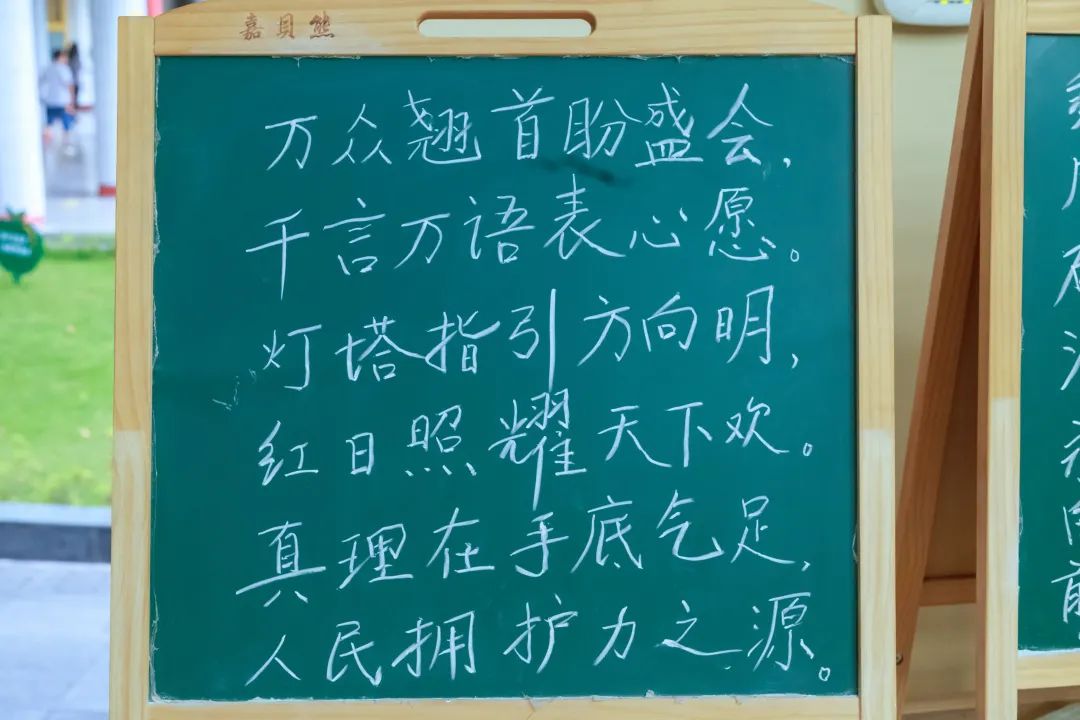 嘉贝熊
万众翘首盼盛会,
千言万语表心愿。
灯塔指引方向明,
红日照耀天下欢。
真理在手底气足,
人民拥护力之源。